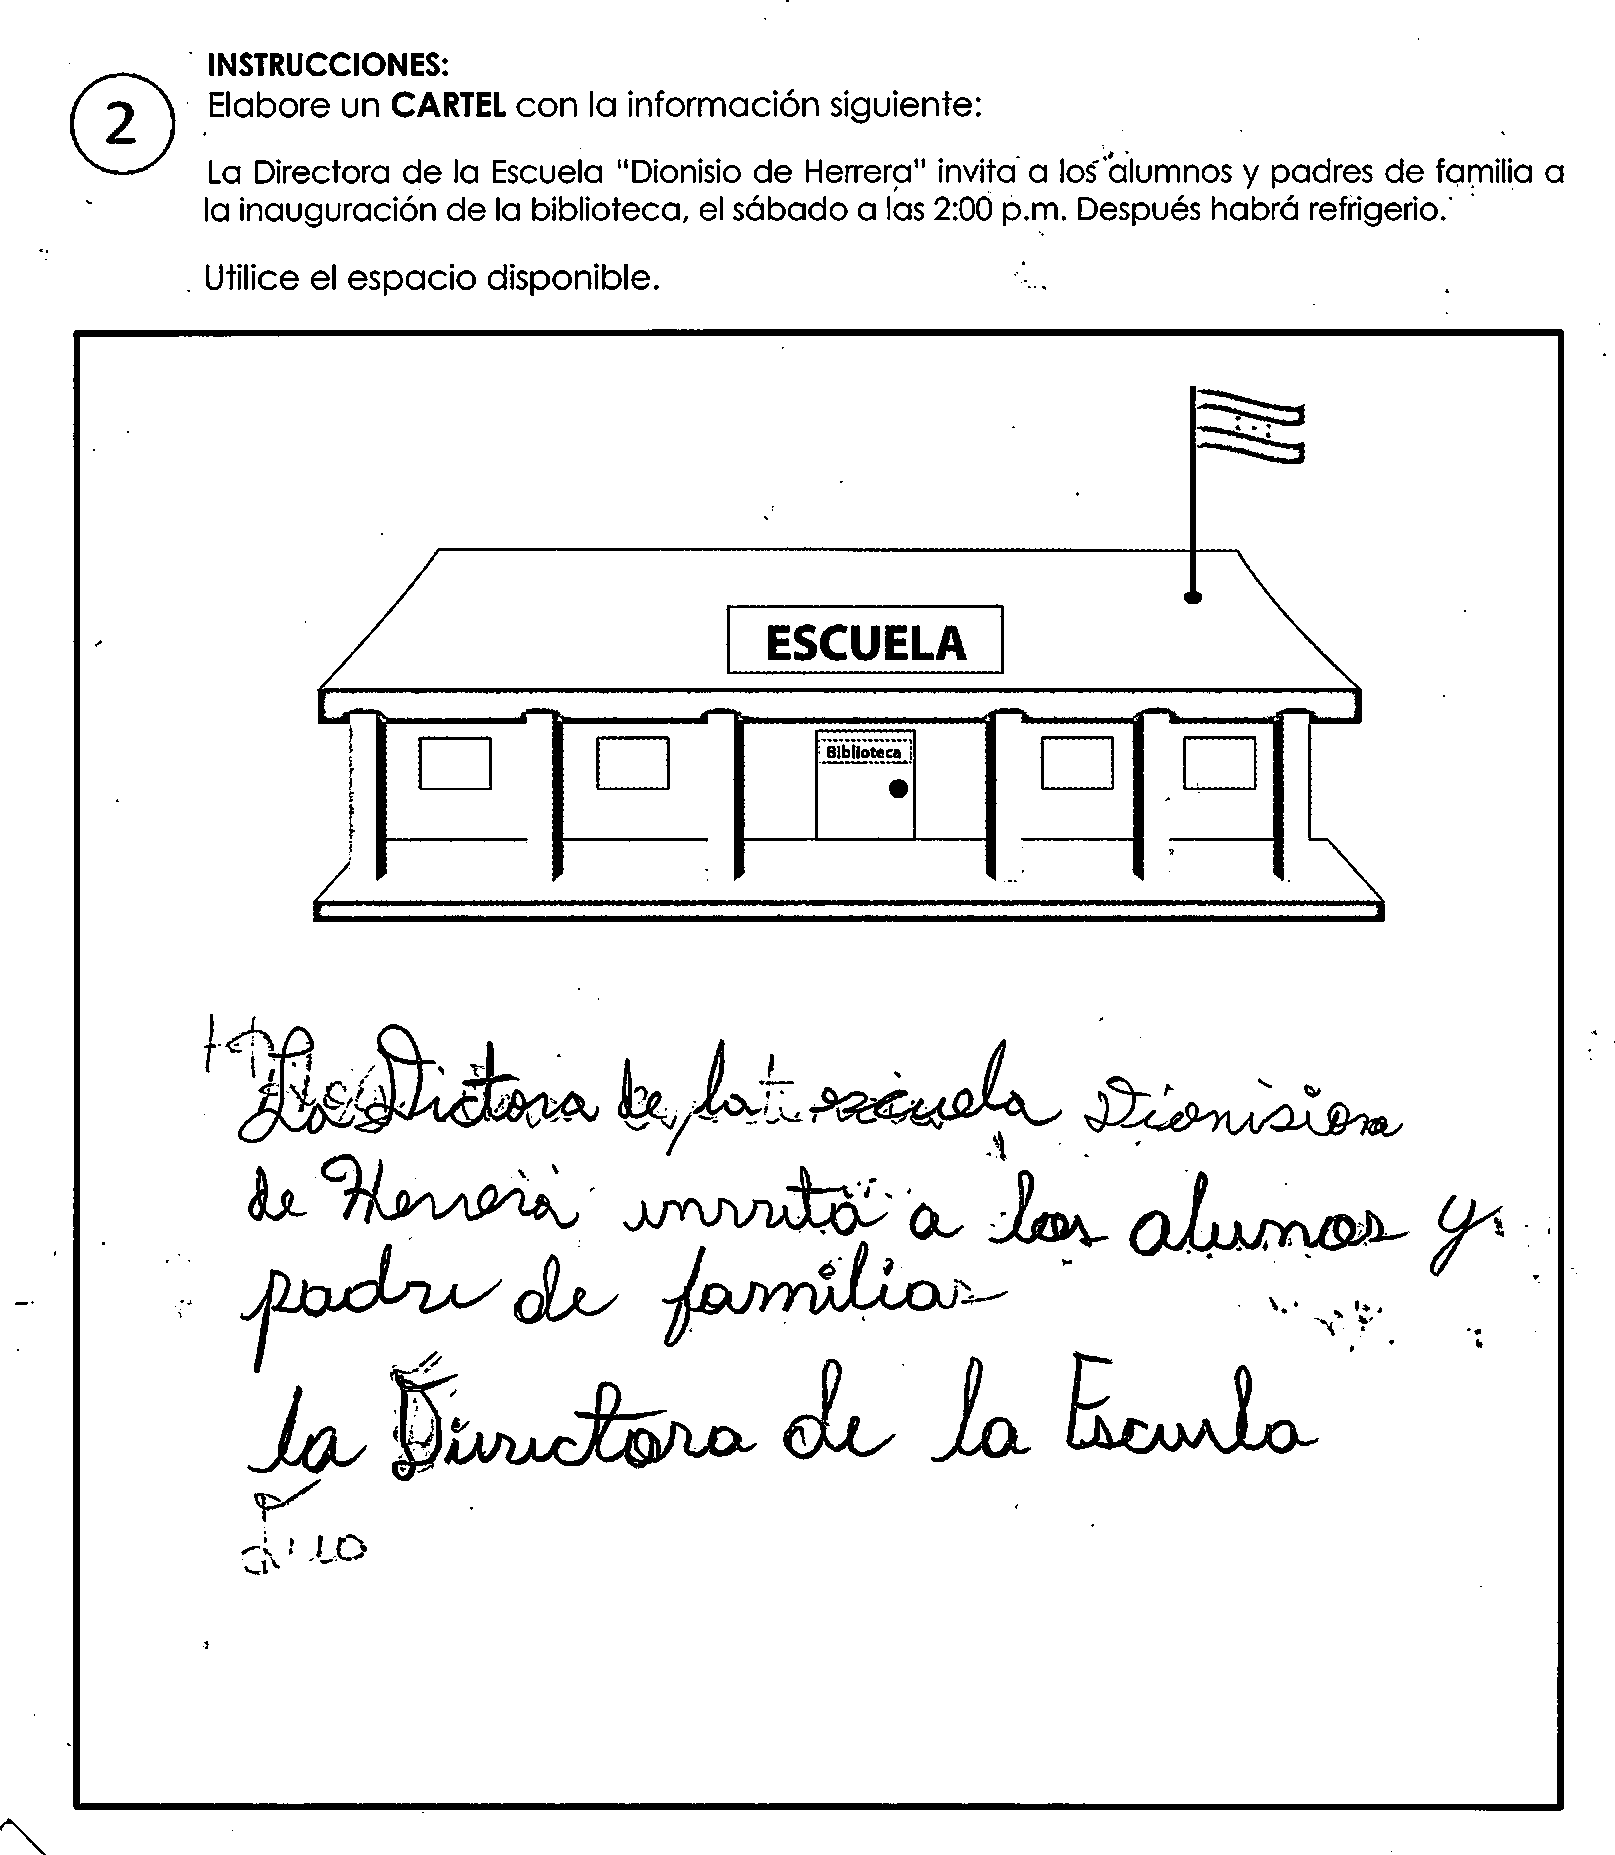 INSTRUCCIONES:
2
Elabore un CARTEL con la información siguiente:
La Directora de la Escuela "Dionisio de Herrera" invita a los alumnos y padres de familia a
la inauguración de la biblioteca, el sábado a las 2:00 p.m. Después habrá refrigerio.
Utilice el espacio disponible.
ESCUELA
Biblioteca
La Dictora de la escuela Dionisiora
de Herrera invvita a los alunos y
padre de familia
la Directora de la Escuela